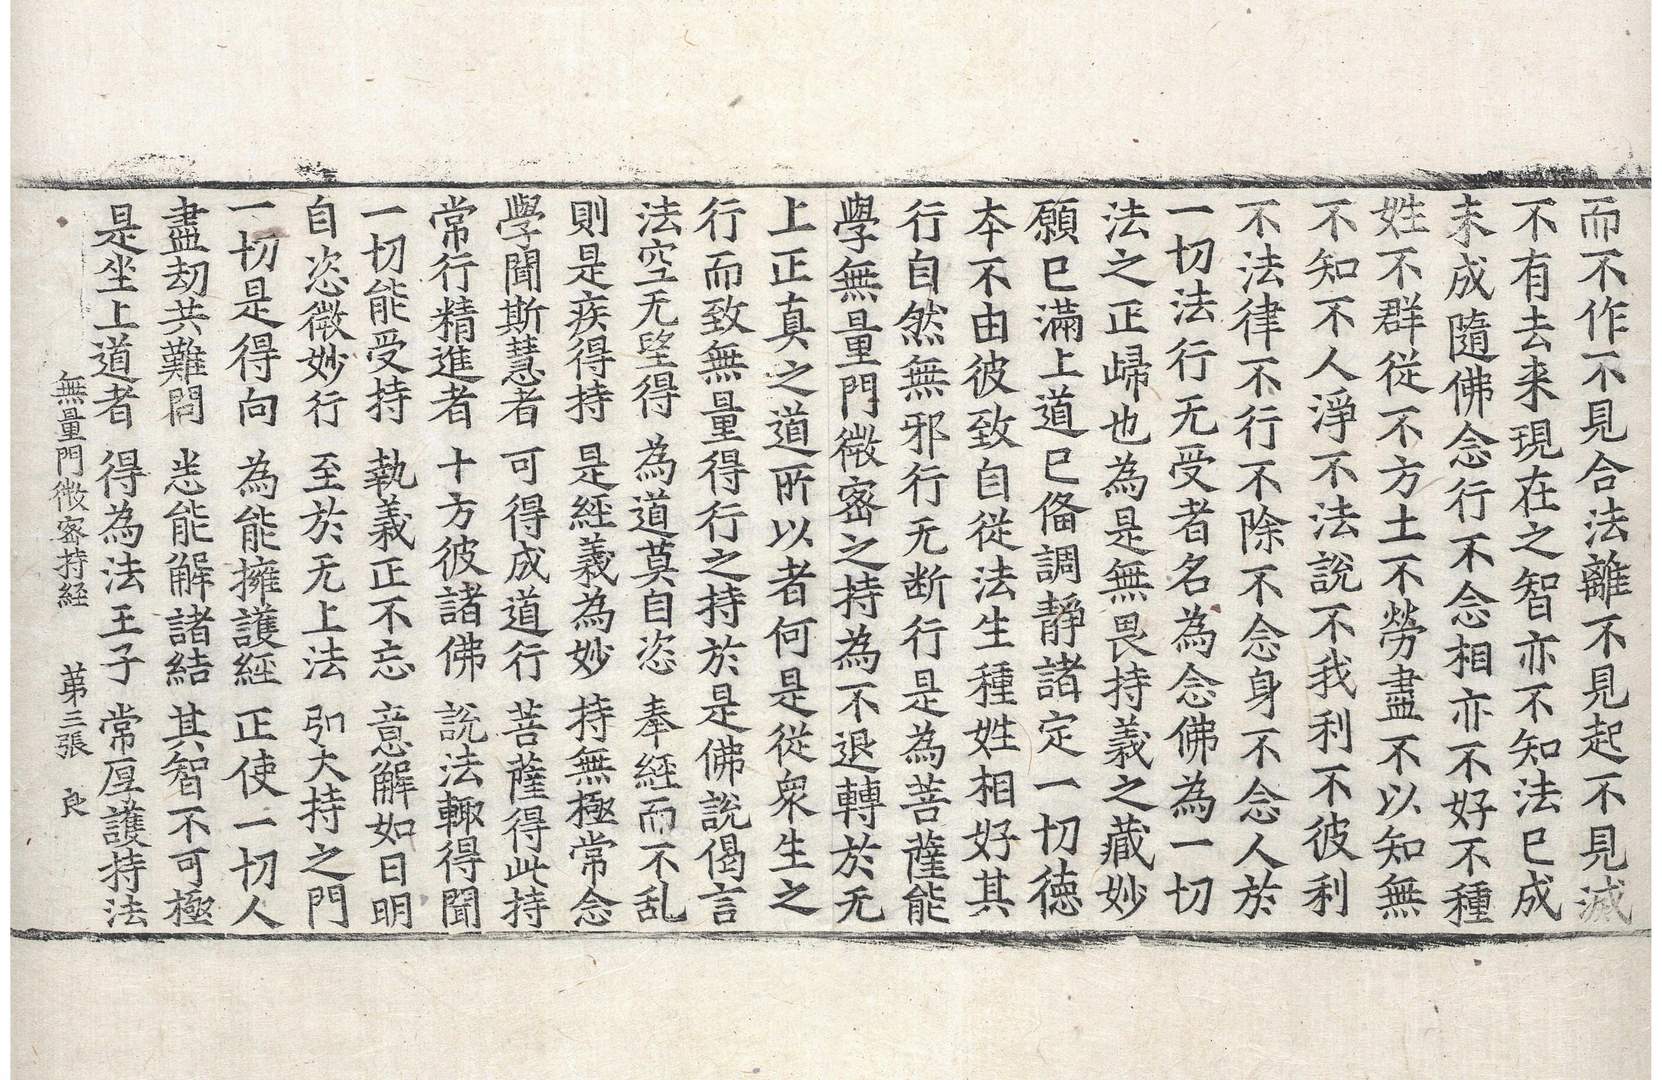 而不作不見合法離不見起不見滅
不有去来現在之智亦不知法已成
未成隨佛念行不念相亦不好不種
姓不群從不方土不勞盡不以知無
不知不人淨不法說不我利不彼利
不法律不行不除不念身不念人於
一切法行无受者名為念佛為一切
法之正歸也為是無畏持義之藏妙
願已滿上道已俻調靜諸定一切德
本不由彼致自從法生種姓相好其
行自然無邪行无断行是為菩薩能
學無量門微密之持為不退轉於无
上正真之道所以者何是從衆生之
行而致無量得行之持於是佛說偈言
法空无望得　為道莫自恣　奉經而不乱
則是疾得持　是經義為妙　持無極常念
學聞斯慧者　可得成道行　菩薩得此持
常行精進者　十方彼諸佛　說法輙得聞
一切能受持　執義正不忘　意解如日明
自恣微妙行　至於无上法　引大持之門
一切是得向　為能擁護經　正使一切人
盡劫共難問　悉能解諸結　其智不可極
是坐上道者　得為法王子　常厚護持法
無量門微密持經　苐三張　良